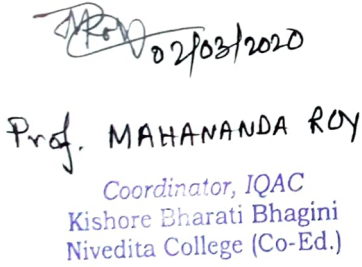 MRoy
02/03/2020
Prof. MAHANANDA ROY
Coordinator, IQAC
Kishore Bharati Bhagini
Nivedita College (Co-Ed.)